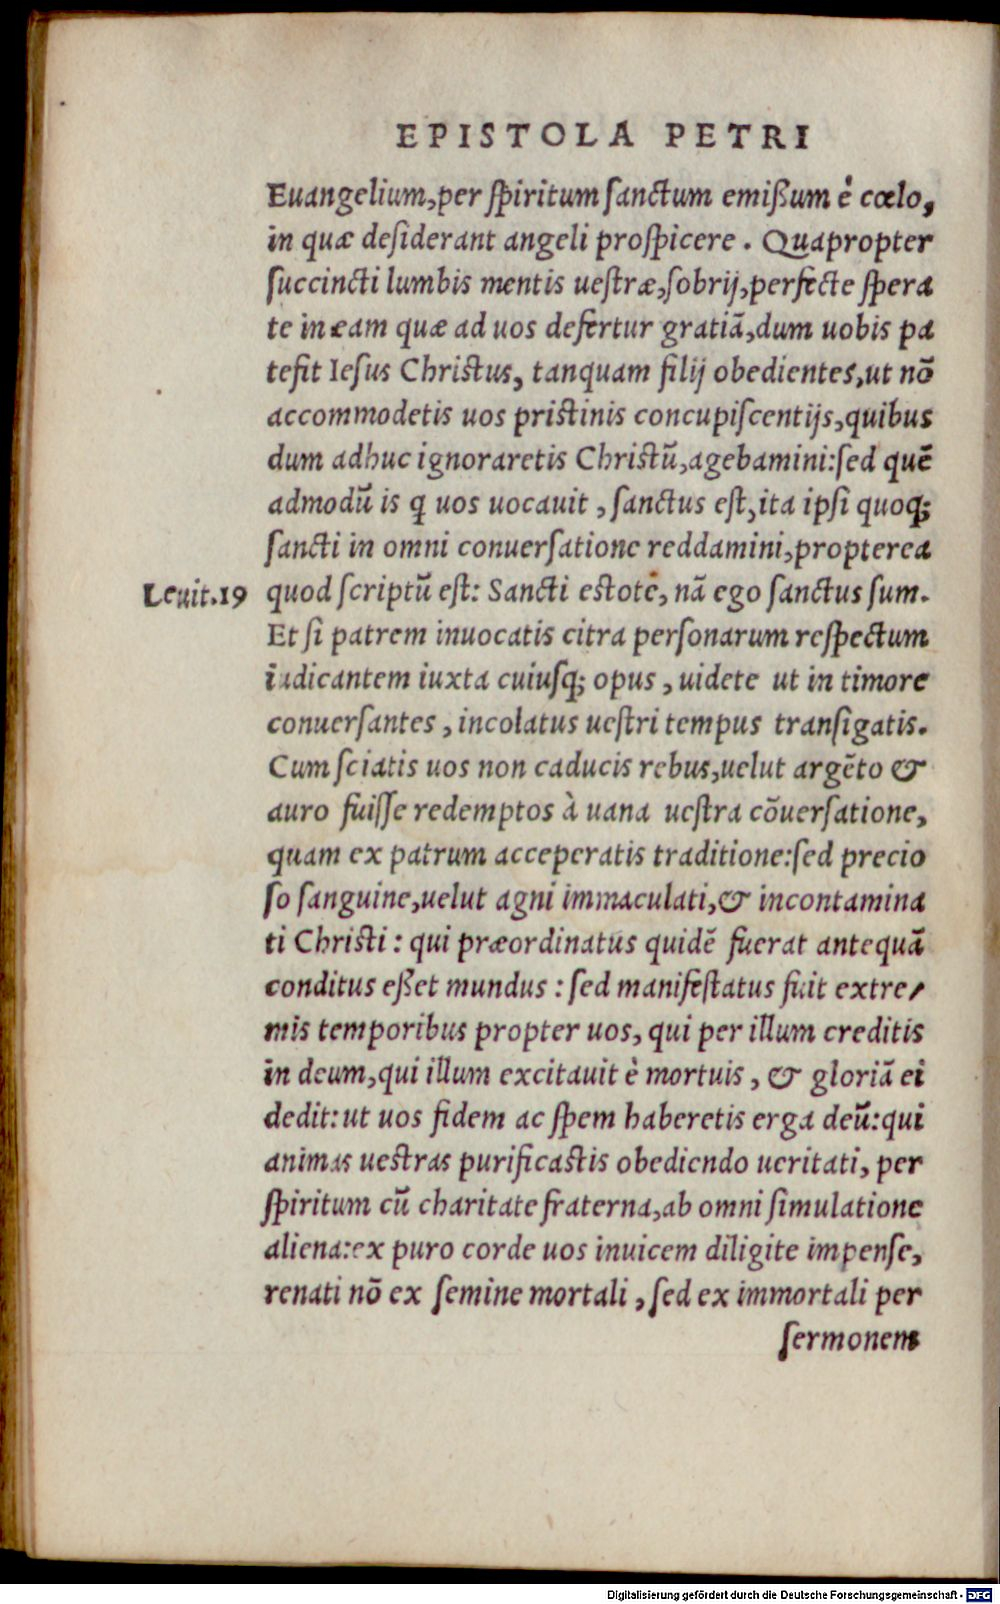 EPISTOLA PETRI
Euangelium, per ſpiritum ſanctum emißum è cœlo,
in quæ deſiderant angeli proſpicere. Quapropter
ſuccincti lumbis mentis ueſtræ, ſobrij, perfecte ſpera
te in eam quæ ad uos defertur gratiã, dum uobis pa
tefit Ieſus Chriſtus, tanquam filij obedientes, ut nõ
accommodetis uos priſtinis concupiſcentijs, quibus
dum adhuc ignoraretis Chriſtũ, agebamini: ſed quẽ
admodũ is ꝗ uos uocauit, ſanctus eſt, ita ipſi quoq;
ſancti in omni conuerſatione reddamini, propterea
Leuit.19 quod ſcriptũ eſt: Sancti eſtote, nã ego ſanctus ſum.
Et ſi patrem inuocatis citra perſonarum reſpectum
iudicantem iuxta cuiuſq; opus, uidete ut in timore
conuerſantes, incolatus ueſtri tempus tranſigatis.
Cum ſciatis uos non caducis rebus, uelut argẽto &
auro fuiſſe redemptos à uana ueſtra cõuerſatione,
quam ex patrum acceperatis traditione: ſed precio
ſo ſanguine, uelut agni immaculati, & incontamina
ti Chriſti: qui præordinatus quidẽ fuerat antequã
conditus eßet mundus: ſed manifeſtatus fuit extre-
mis temporibus propter uos, qui per illum creditis
in deum, qui illum excitauit è mortuis, & gloriã ei
dedit: ut uos fidem ac ſpem haberetis erga deũ: qui
animas ueſtras purificaſtis obediendo ueritati, per
ſpiritum cũ charitate fraterna, ab omni ſimulatione
aliena: ex puro corde uos inuicem diligite impenſe,
renati nõ ex ſemine mortali, ſed ex immortali per
ſermonem
Digitalisierung gefördert durch die Deutsche Forschungsgemeinschaft - DFG